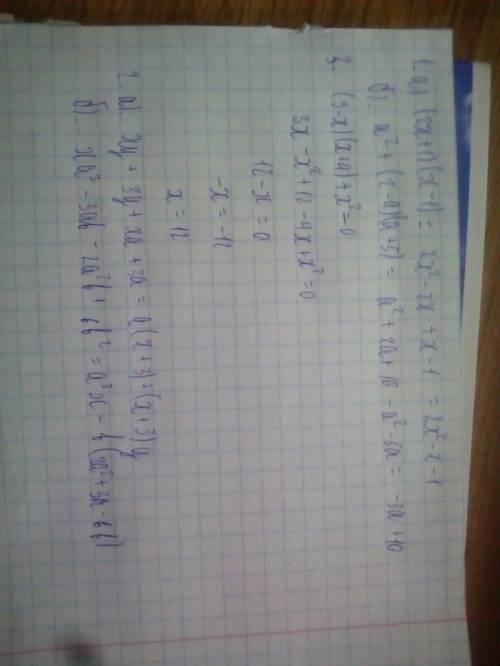 1. a) (2x+1)(x-1) = 2x²-2x+x-1 = 2x²-x-1
б). a²+(2-a)(a+5) = a²+2a+10-a²-5a = -3a+10
3. (3-x)(x+4)+x²=0
3x-x²+12-4x+x²=0
12-x=0
-x=-12
x=12
2. a). xy+3y+xa+3a = a(x+3)+(x+3)y
б). xa³-3ab-2a²b+6b² = a³x-b(2a²+3a-6b)